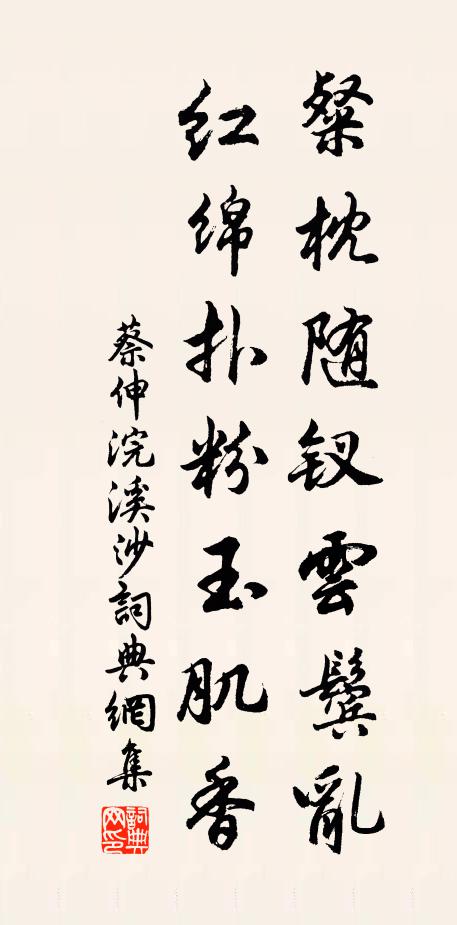 粲枕随钗雲鬓亂
红绵扑粉玉肌香
蔡伸浣溪沙詞典網集
詞典网印